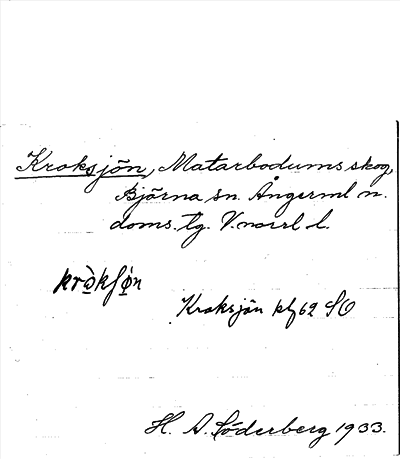 Kroksjön, Matarbodums skog,
Björna sn. Ångerml n.
doms. tg. V.norrl l.
krὸ̣kʃø̣n
Kroksjön kf 62 SO
H. A. Söderberg 1933.